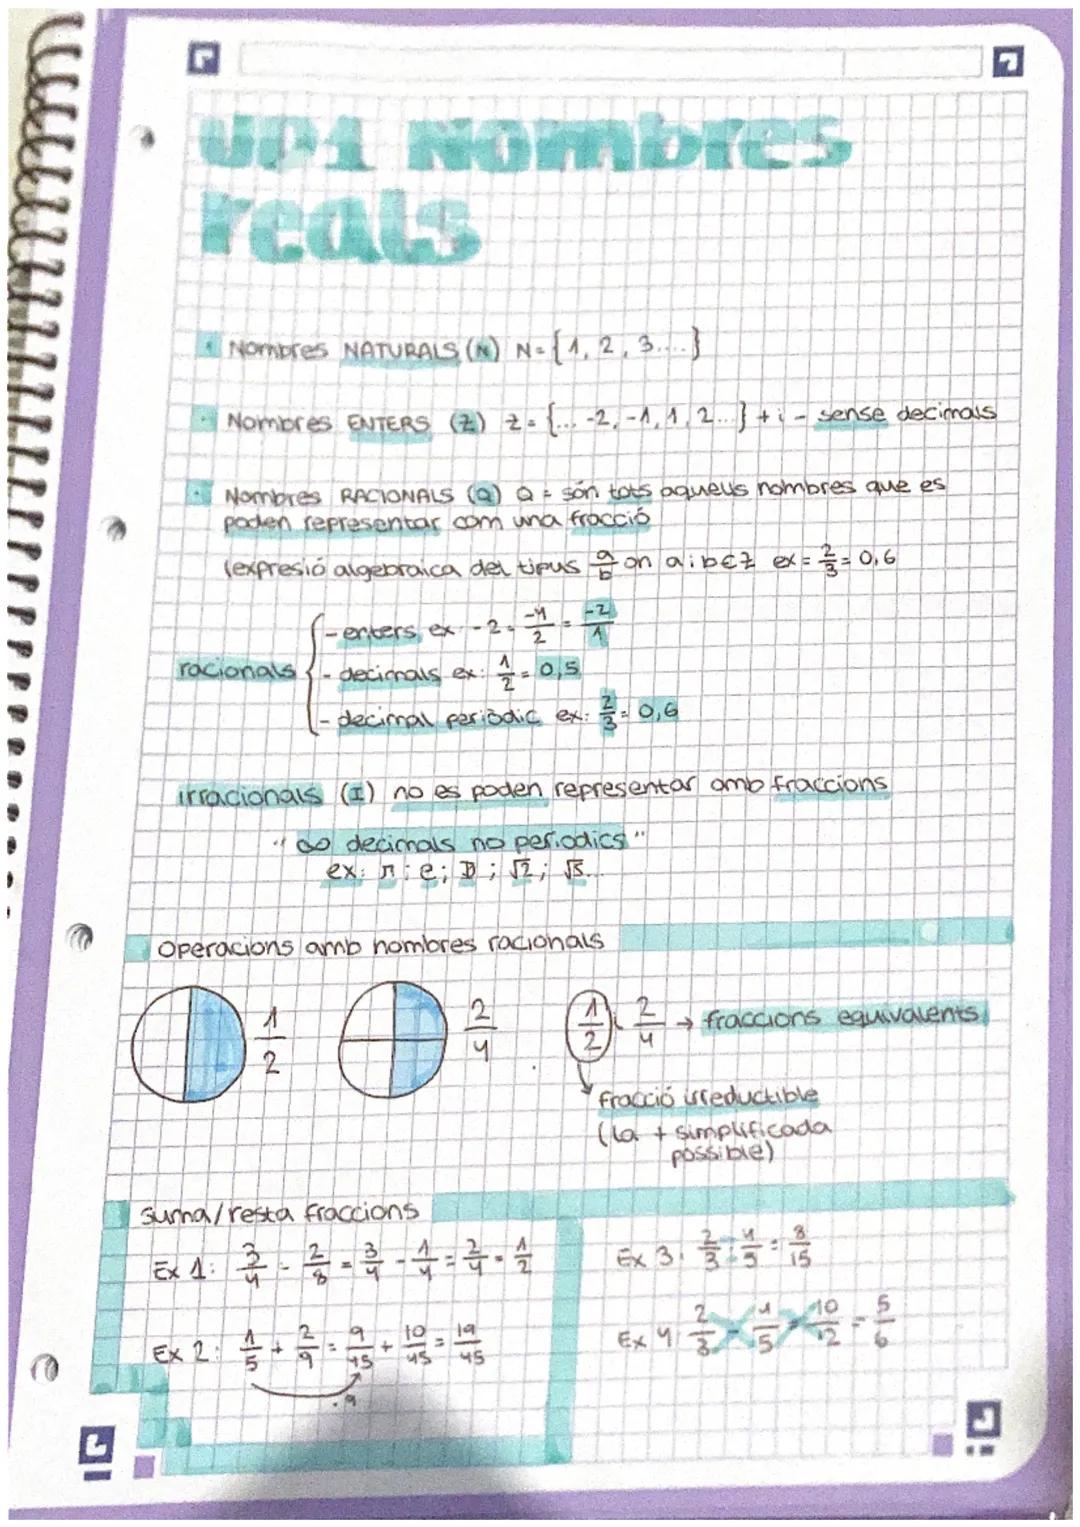 UD1 Nombres
reals
Nombres NATURALS (N) N = {1, 2, 3....}
Nombres ENTERS (Z) Z = {... -2, -1, 1, 2...} + i - sense decimals
Nombres RACIONALS (Q) Q = són tots aquells nombres que es
poden representar com una fracció
(expresió algebraica del tipus a/b on a i b ∈ Z ex = 2/3 = 0,6
racionals
- enters ex -2 = -4/2 = -2/1
- decimals ex: 1/2 = 0,5
- decimal periòdic ex: 2/3 = 0,6
irracionals (I) no es poden representar amb fraccions
"∞ decimals no periodics"
ex: π; e; ; √2; √3...
Operacions amb nombres racionals
1/2
2/4
1/2 2/4 → fraccions equivalents
fracció irreductible
(la + simplificada
possible)
suma/resta fraccions
Ex 1: 3/4 - 2/8 = 3/4 - 1/4 = 2/4 = 1/2
Ex 2: 1/5 + 2/9 = 9/45 + 10/45 = 19/45
·9
Ex 3: 2/3 · 4/5 = 8/15
Ex 4: 2/3 - 4/5 = 10/12 = 5/6